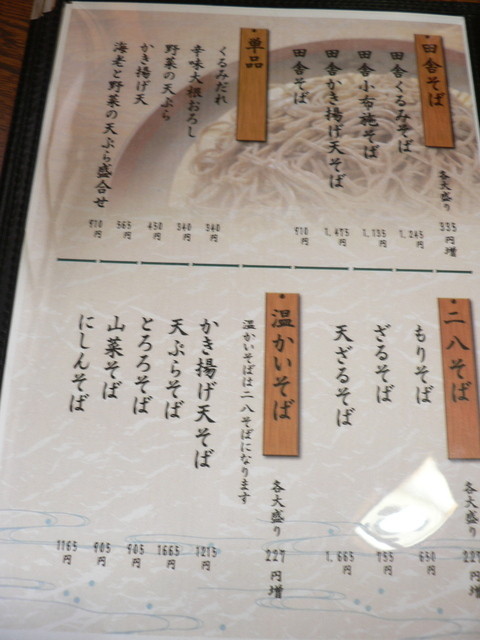 田舎そば
各大盛り 335円増
田舎くるみそば 1,245円
田舎小布施そば 1,135円
田舎かき揚げ天そば 1,475円
田舎そば 910円
単品
くるみだれ 340円
辛味大根おろし 340円
野菜の天ぷら 450円
かき揚げ天 565円
海老と野菜の天ぷら盛合せ 910円
二八そば
各大盛り 227円増
もりそば 650円
ざるそば 755円
天ざるそば 1,665円
温かいそば
各大盛り 227円増
温かいそばは二八そばになります
かき揚げ天そば 1215円
天ぷらそば 1665円
とろろそば 905円
山菜そば 905円
にしんそば 1165円